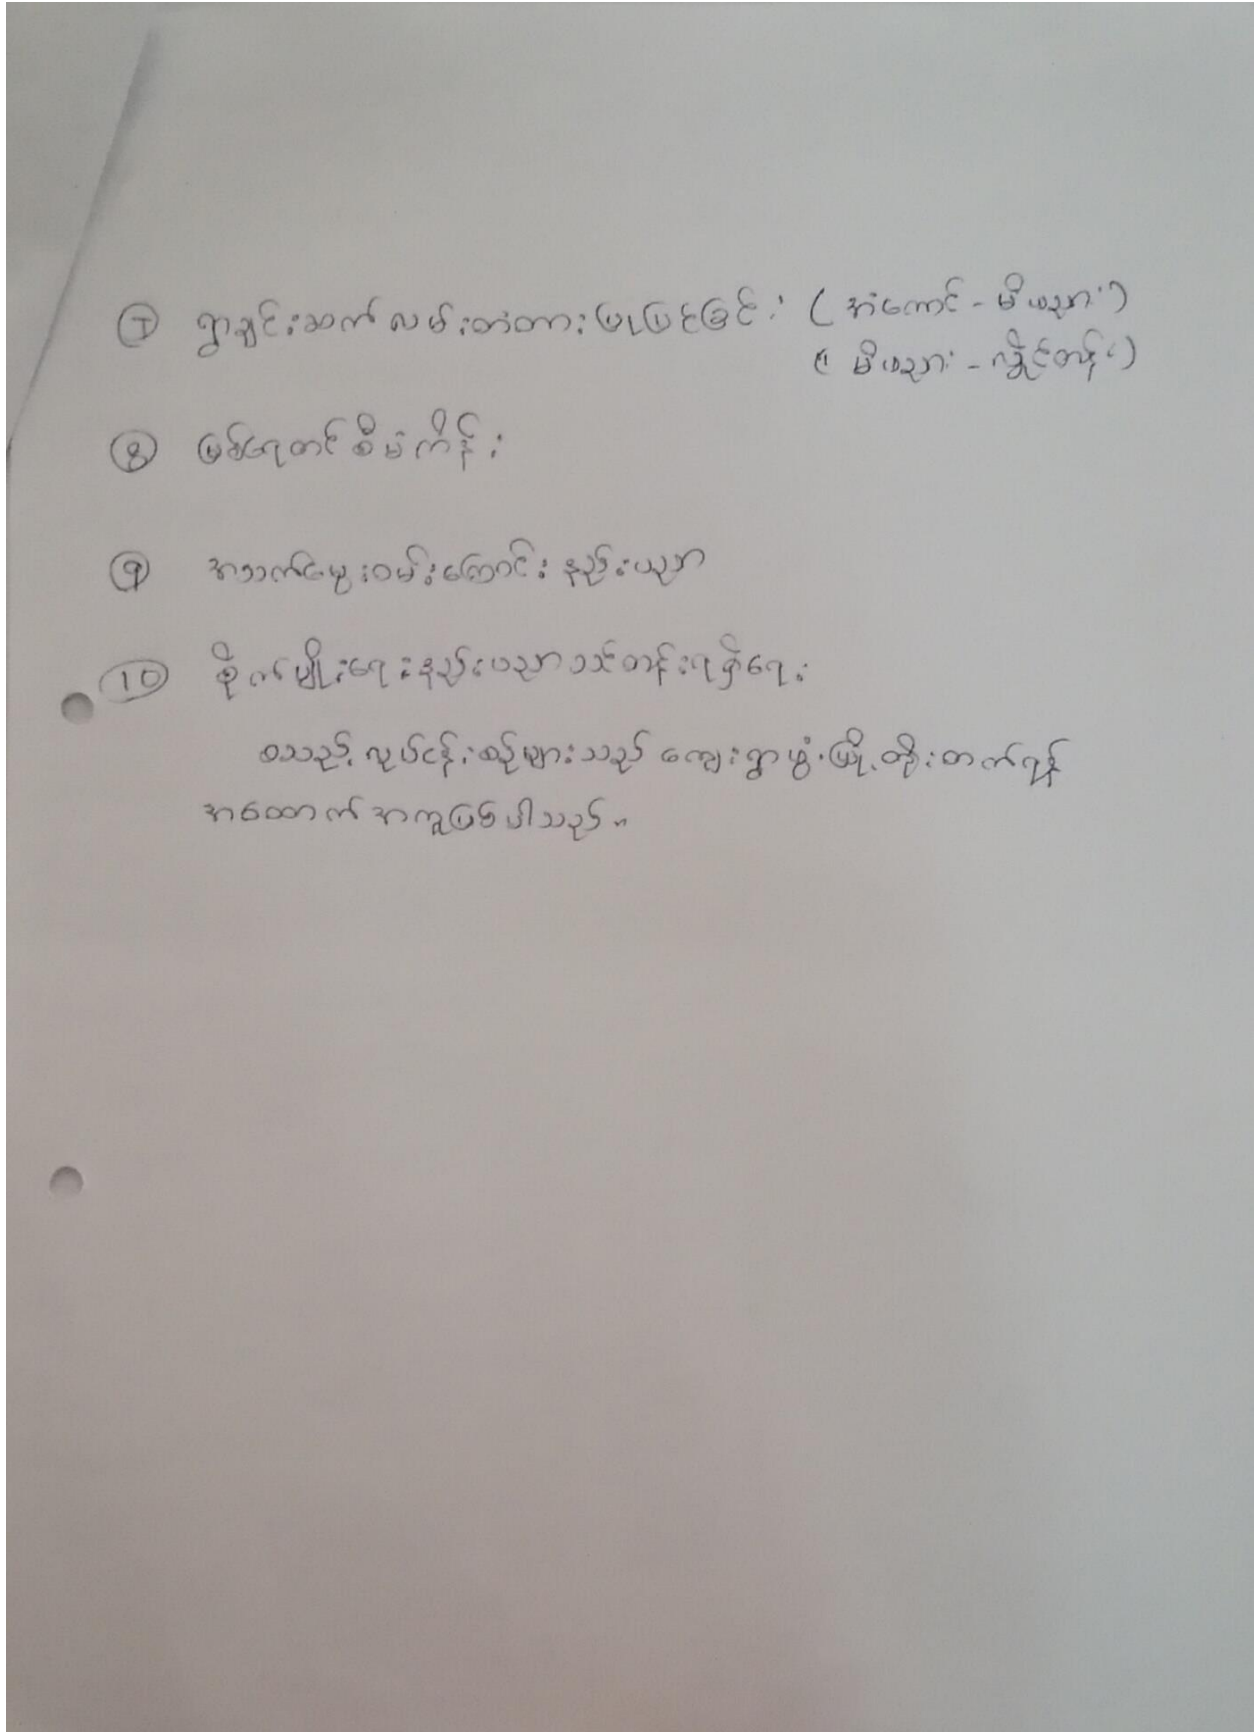 ⑦ ရွာချင်းဆက်လမ်းတံတားပြုပြင်ခြင်း (အံကောင် - မိဖညား)
(မိဖညား - လှိုင်တန်း)
⑧ မြစ်ရေတင်စီမံကိန်း
⑨ အသက်မွေးဝမ်းကြောင်းနည်းပညာ
⑩ စိုက်မျိုးရေးနည်းပညာသင်တန်းရရှိရေး
စသည့်လုပ်ငန်းစဉ်များသည် ကျေးရွာဖွံ့ဖြိုးတိုးတက်ရန်
အထောက်အကူဖြစ်ပါသည်။